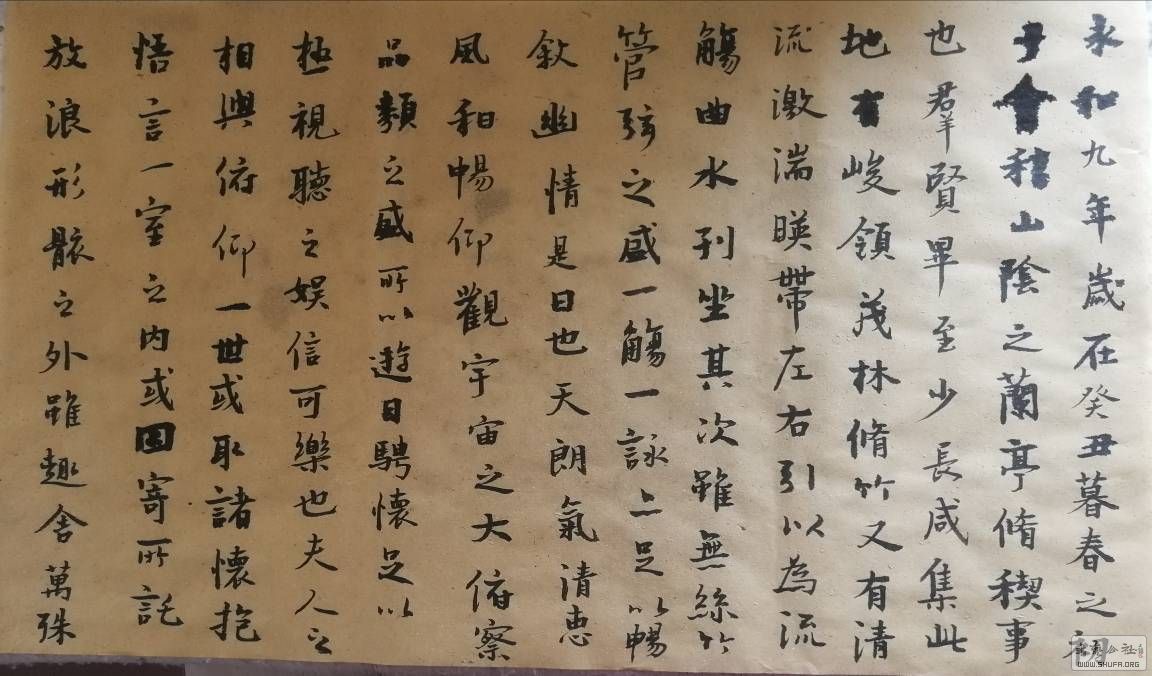 永和九年歲在癸丑暮春之初
于會稽山陰之蘭亭脩稧事
也羣賢畢至少長咸集此
地有峻領茂林脩竹又有清
流激湍暎帶左右引以為流
觴曲水列坐其次雖無絲竹
管弦之盛一觴一詠亦足以暢
敘幽情是日也天朗氣清惠
風和暢仰觀宇宙之大俯察
品類之盛所以遊目騁懷足以
極視聽之娛信可樂也夫人之
相與俯仰一世或取諸懷抱
悟言一室之內或因寄所託
放浪形骸之外雖趣舍萬殊
WWW.SHUFA.ORG